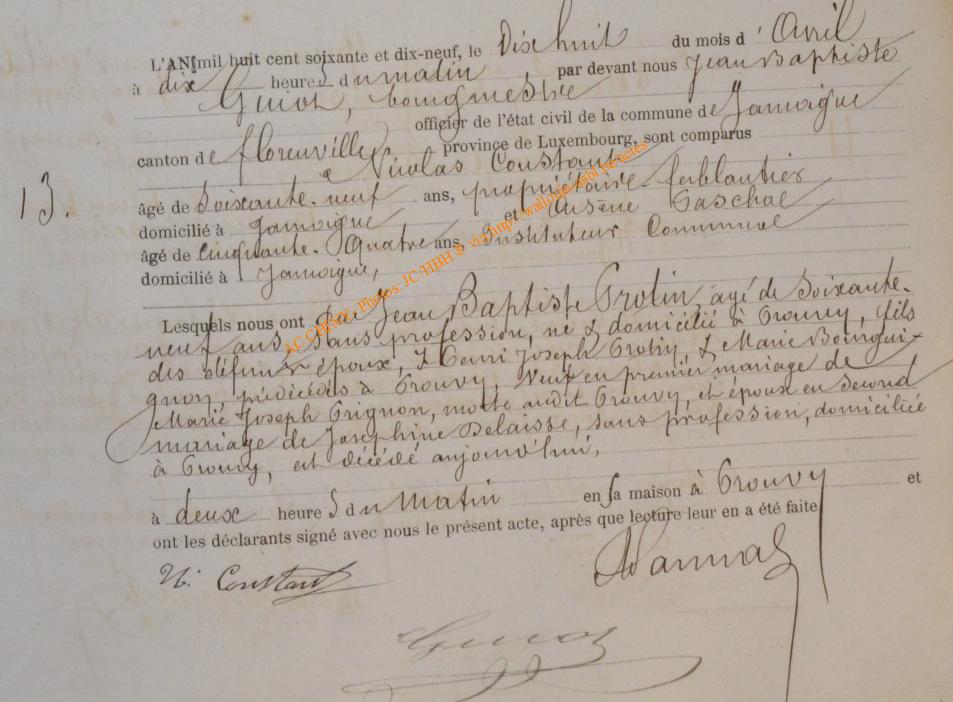 L'AN mil huit cent soixante et dix-neuf, le Dix huit du mois d'Avril
à dix heures du matin, par devant nous Jean Baptiste
Guiot, bourgmestre
officier de l'état civil de la commune de Jamoigne
canton de florenville province de Luxembourg, sont comparus
Nicolas Constant
âgé de Soixante-neuf ans, propriétaire-ferblantier
domicilié à Jamoigne et Arsène Paschal
âgé de Cinquante-Quatre ans, Instituteur Communal
domicilié à Jamoigne,
Lesquels nous ont Jean Baptiste Protin, agé de Soixante-
neuf ans, sans profession, né & domicilié à Prouvy, fils
des défunts époux, Henri Joseph Protin, & Marie Bourgui-
gnon, prédécédés à Prouvy, Veuf en premier mariage de
Marie Joseph Grignon, morte audit Prouvy, et époux en second
mariage de Joséphine Delaisse, sans profession, domiciliée
à Prouvy, est décédé aujourd'hui,
à deux heures du Matin en sa maison à Prouvy et
ont les déclarants signé avec nous le présent acte, après que lecture leur en a été faite
13.
N. Constant
Guiot